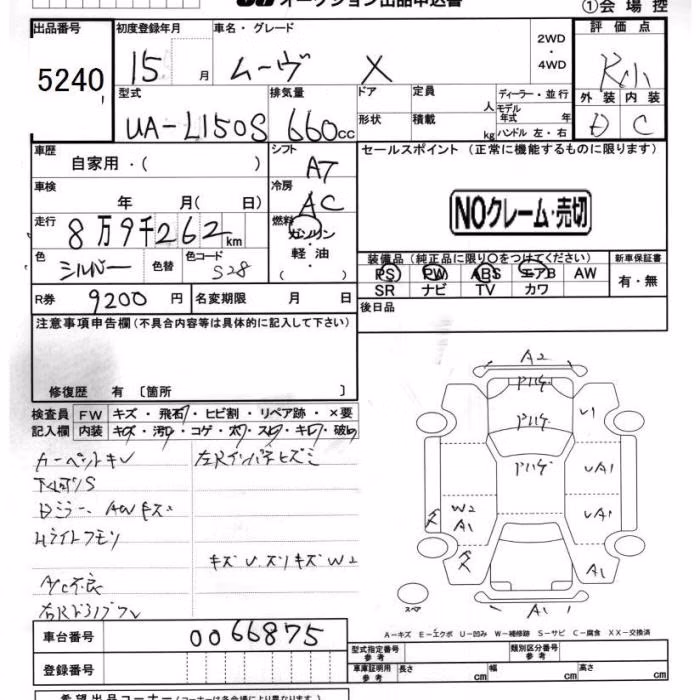 オークション出品申込書
①会場控
出品番号 初度登録年月 車名・グレード 2WD・4WD 評価点
5240 15 月 ムーヴ X R小
型式 排気量 ドア 定員 人 ディーラー・並行 外装 内装
UA-L150S 660cc 形状 積載 kg モデル年式 年 ハンドル 左・右 D C
車歴 シフト セールスポイント (正常に機能するものに限ります)
自家用・( ) AT
車検 冷房
年 月( 日) AC
NOクレーム・売切
走行 燃料
8万9千262km ガソリン・軽油・( )
色 色替 色コード 装備品 (純正品に限り○をつけてください) 新車保証書
シルバー S28 PS PW ABS エアB AW 有・無
SR ナビ TV カワ
R券 9200円 名変期限 月 日 後日品
注意事項申告欄(不具合内容等は具体的に記入して下さい)
修復歴 有 〔箇所 〕
検査員 FW キズ・飛石・ヒビ割・リペア跡・×要
記入欄 内装 キズ・汚れ・コゲ・穴・スレ・キレ・破れ
カーペットキレ
Dミラー AWキズ
Hライトクモリ
キズU、スリキズW2
A/C不良
A2
ハゲ
ハゲ
ハゲ
U1
UA1
W2
A1
UA1
A1
A1
スペア
A-キズ E-エクボ U-凹み W-補修跡 S-サビ C-腐食 XX-交換済
車台番号 0066875
型式指定番号 参考 類別区分番号 参考
登録番号 車庫証明用 参考 長さ cm 幅 cm 高さ cm
希望出品コーナー(コーナーは各会場により異なります)